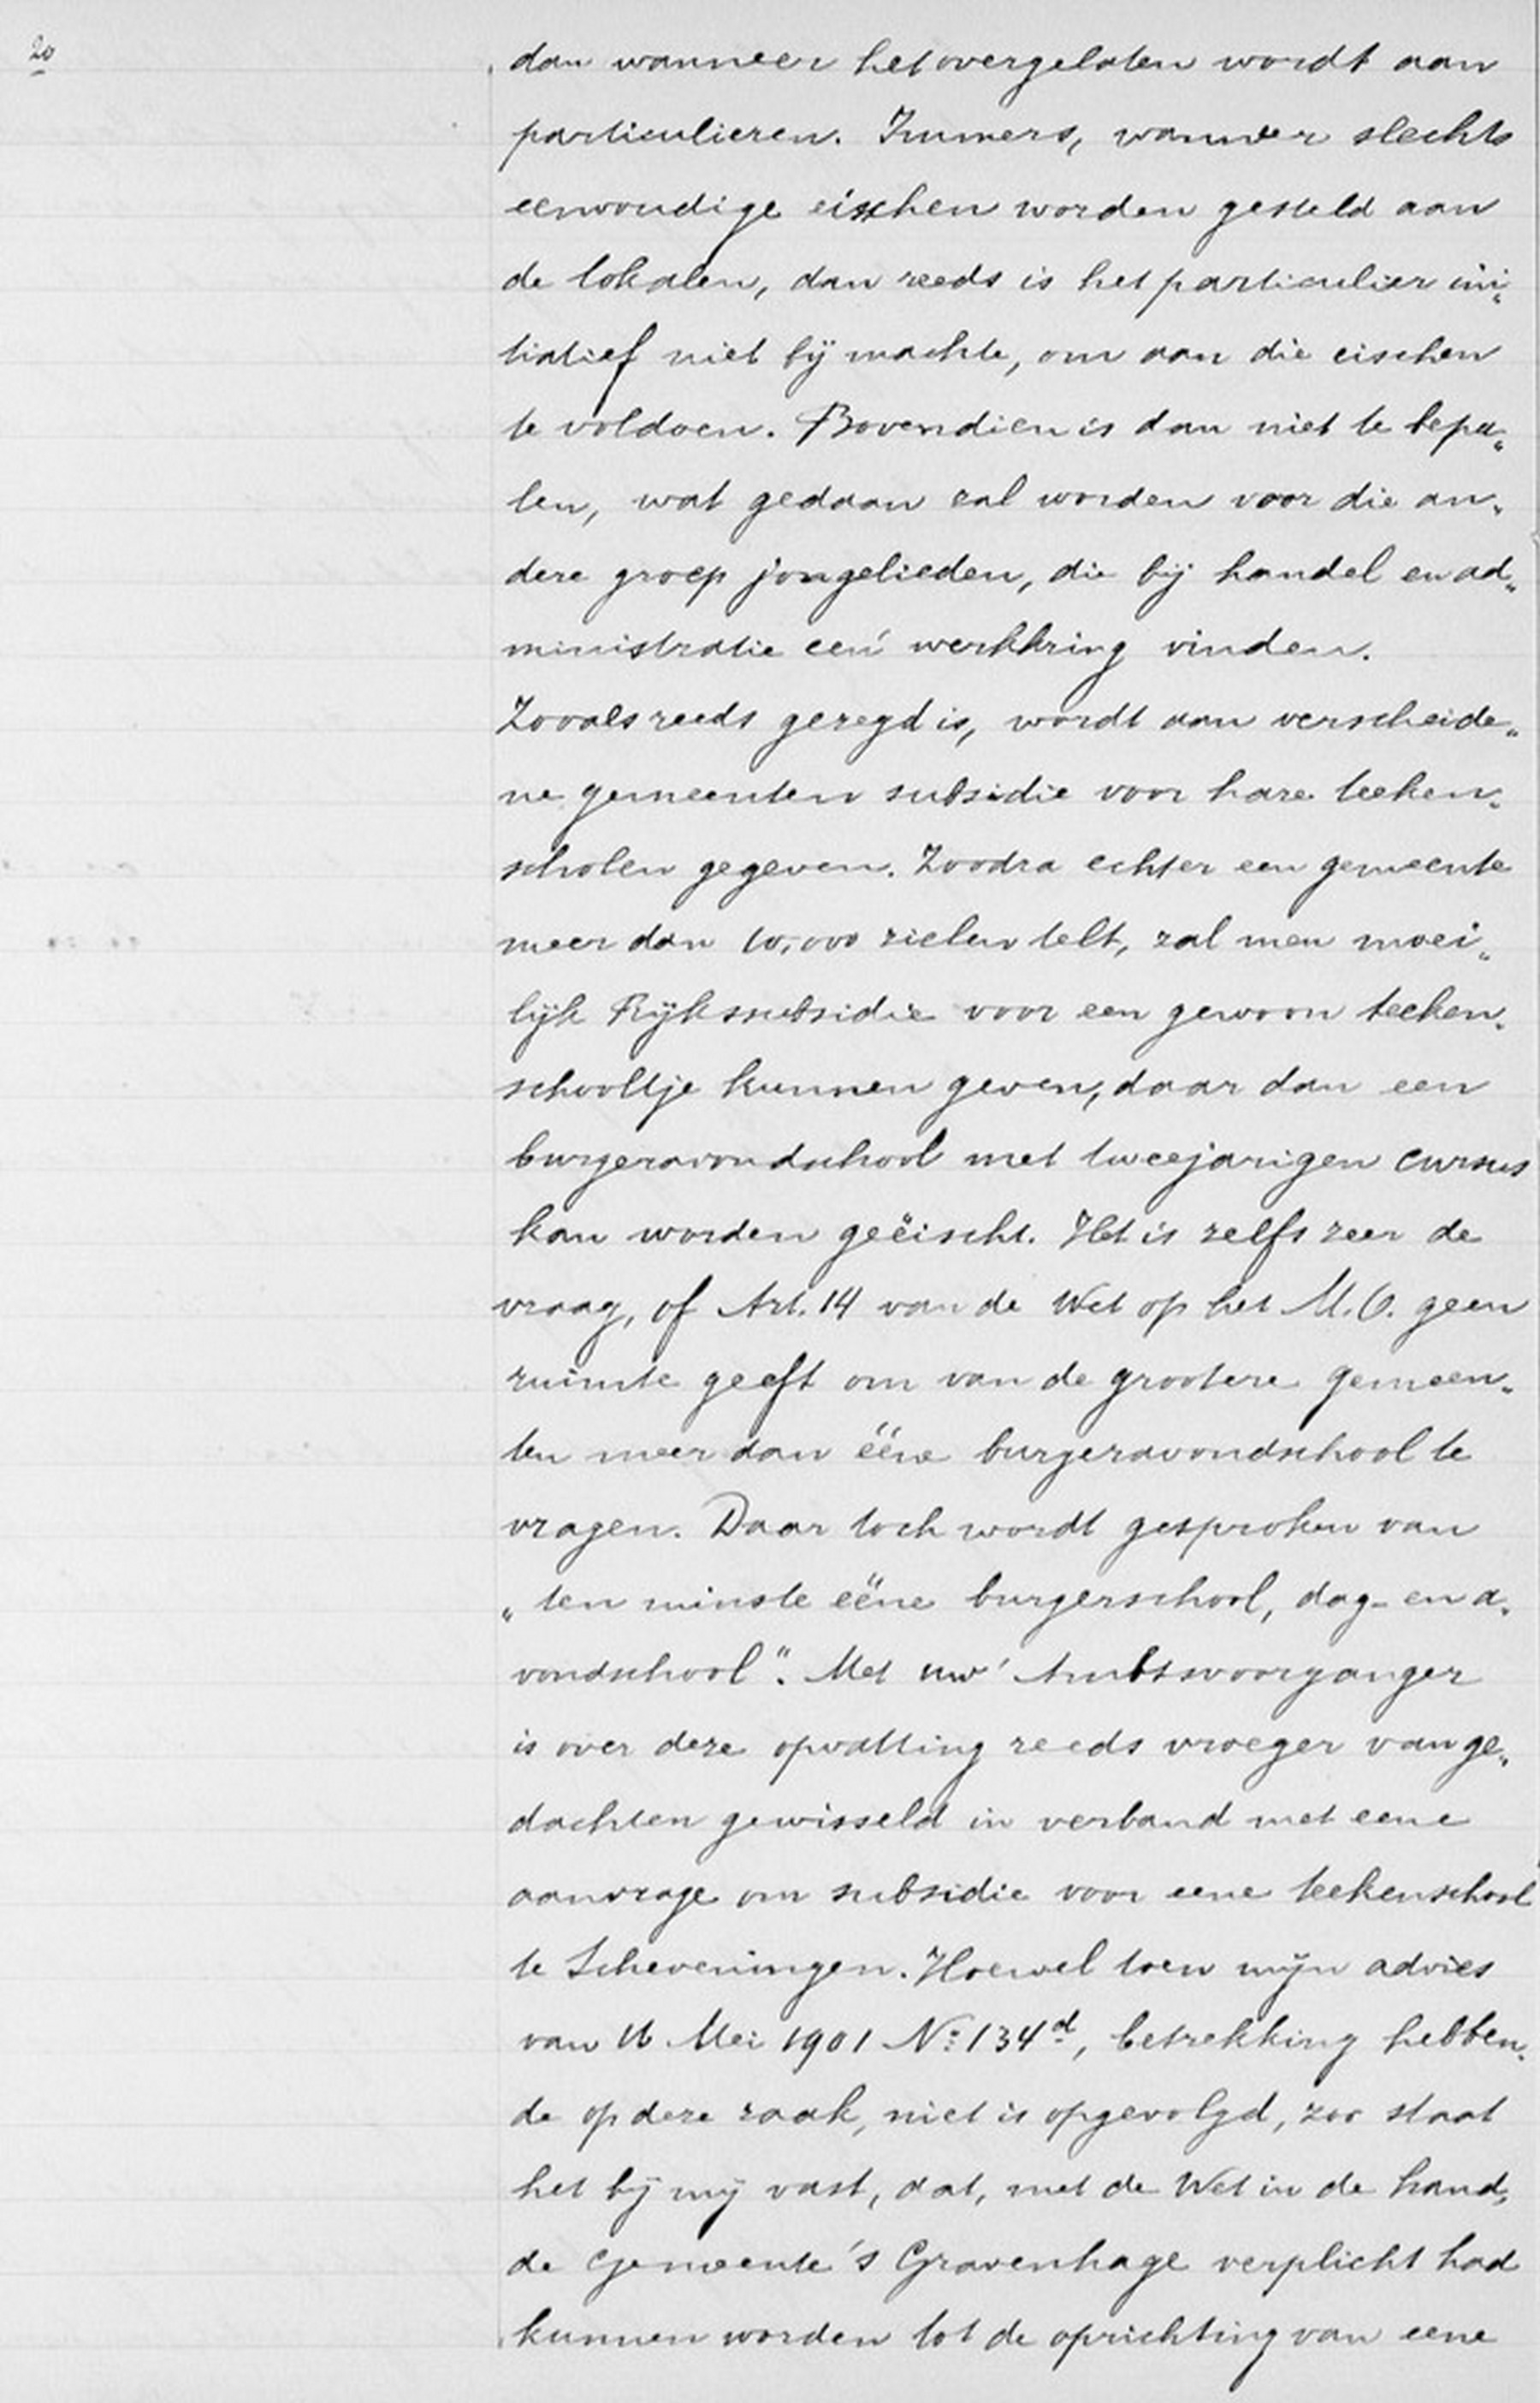 20
dan wanneer het overgelaten wordt aan
particulieren. Immers, wanneer slechts
eenvoudige eischen worden gesteld aan
de lokalen, dan reeds is het particulier ini„
tiatief niet bij machte, om aan die eischen
te voldoen. Bovendien is dan niet te bepa„
len, wat gedaan zal worden voor die an„
dere groep jongelieden, die bij handel en ad„
ministratie een werkkring vinden.
Zooals reeds gezegd is, wordt aan verscheide„
ne gemeenten subsidie voor hare teeken„
scholen gegeven. Zoodra echter een gemeente
meer dan 10,000 zielen telt, zal men moei„
lijk Rijkssubsidie voor een gewoon teeken„
schooltje kunnen geven, daar dan een
burgeravondschool met tweejarigen cursus
kan worden geëischt. Het is zelfs zeer de
vraag, of Art. 14 van de Wet op het M.O. geen
ruimte geeft om van de grootere gemeen„
ten meer dan ééne burgeravondschool te
vragen. Daar toch wordt gesproken van
„ten minste eëne burgerschool, dag- en a„
vondschool". Met uw Ambtsvoorganger
is over deze opvatting reeds vroeger van ge„
dachten gewisseld in verband met eene
aanvrage om subsidie voor eene teekenschool
te Scheveningen. Hoewel toen mijn advies
van 16 Mei 1901 No 134d, betrekking hebben„
de op deze zaak, niet is opgevolgd, zoo staat
het bij mij vast, dat, met de Wet in de hand,
de Gemeente 's Gravenhage verplicht had
kunnen worden tot de oprichting van eene